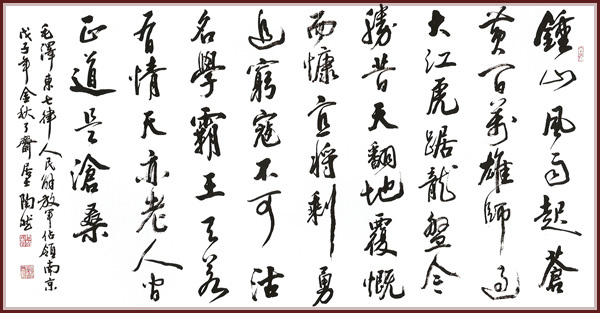 鍾山風雨起蒼
黄百萬雄師過
大江虎踞龍盤今
勝昔天翻地覆慨
而慷宜将剩勇
追窮寇不可沽
名學霸王天若
有情天亦老人间
正道是滄桑
毛澤東七律人民解放軍佔領南京
戊子年金秋了齋居陶然